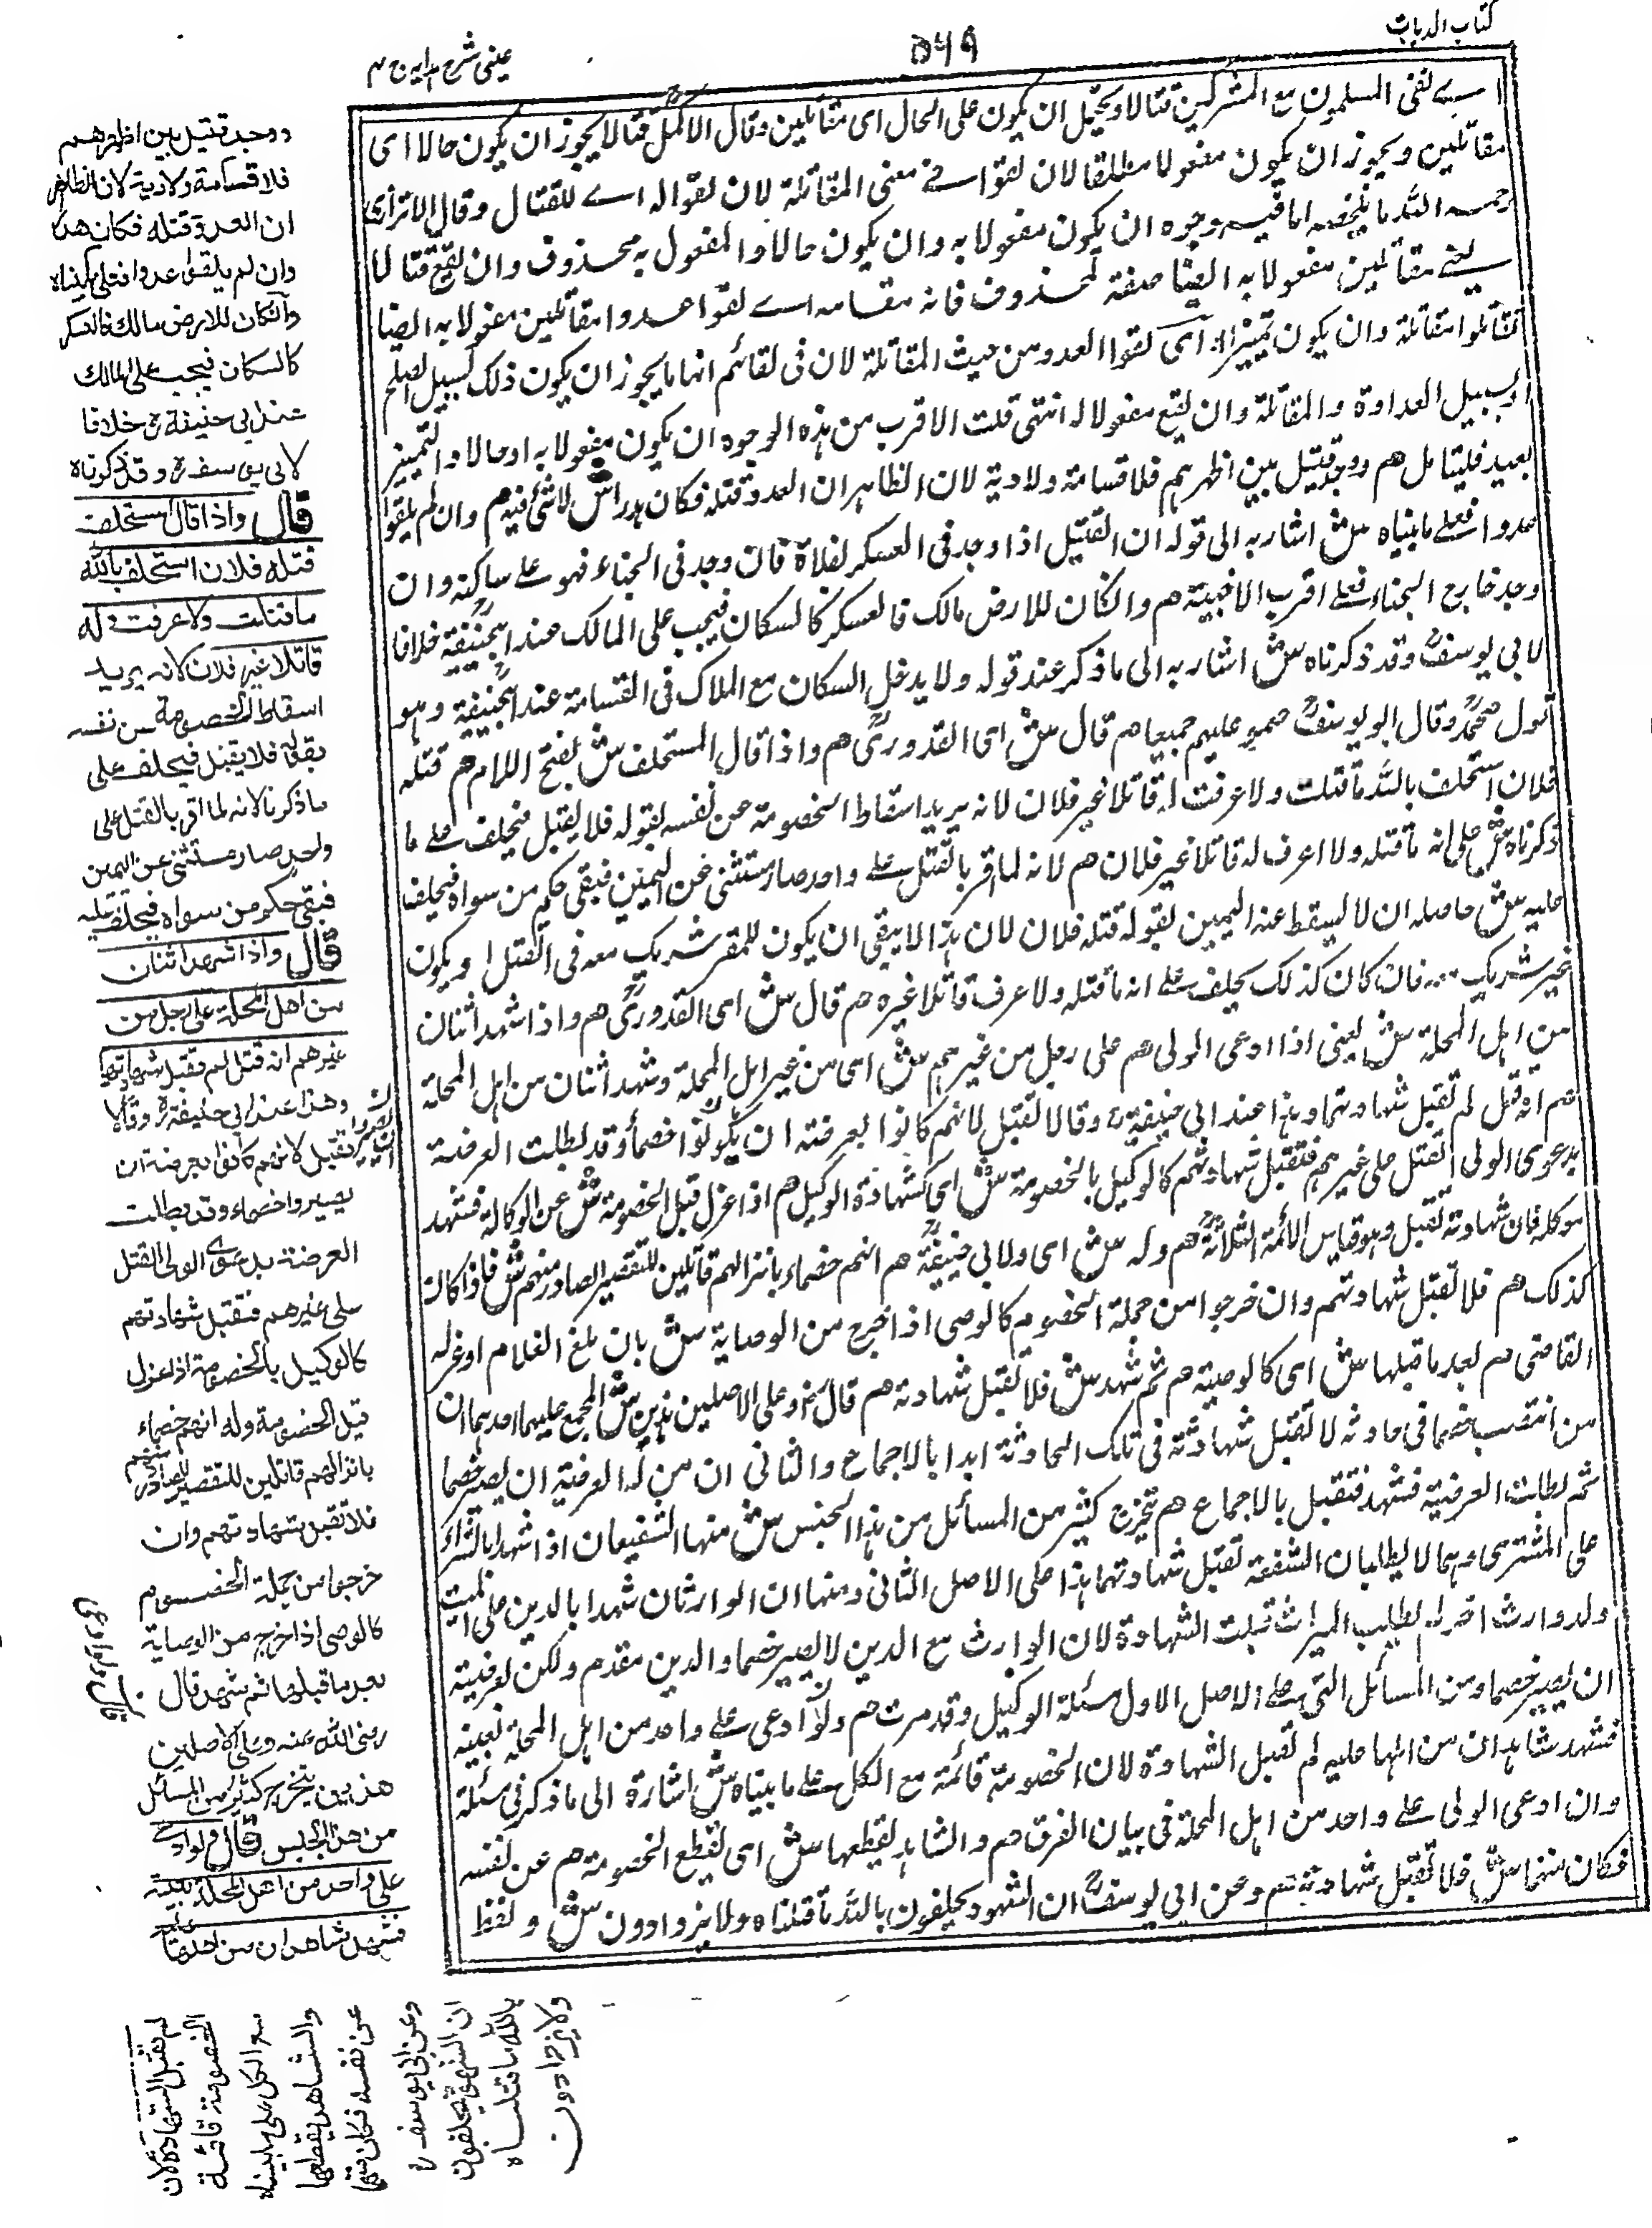 كتاب الديات
٥٤٩
عينى شرح هدايه ج ٤
اے لقى المسلمون مع المشركين قتالا ويحتمل ان يكون على الحال اى مقاتلين وقال الاكمل قتالا يجوز ان يكون حالا اى
مقاتلين ويجوز ان يكون مفعولا مطلقا لان لقوا فے معنى المقاتلة لان لقوا له اے للقتال وقال الاترازى
رحمه الله ما ملخصه اما فيه وجوه ان يكون مفعولا به وان يكون حالا والمفعول به محذوف وان يقع قتالا
يعنے مقاتلين مفعولا به ايضا صفة لمحذوف قائمة مقامه اے لقوا عدوا مقاتلين مفعولا به ايضا
تقاتلوا مقاتلة وان يكون تمييزا اى لقوا العدو من حيث المقاتلة لان فى لقائهم ابهاما يجوز ان يكون ذلك لسبيل الصلح
او لسبيل العداوة والمقاتلة وان يقع مفعولا له انتهى قلت الاقرب من هذه الوجوه ان يكون مفعولا به او حالا والتمييز
بعيد فليتامل هم ووجد قتيل بين اظهرهم فلا قسامة ولا دية لان الظاهر ان العدو قتله فكان هدرا ش لا شئ فيه هم وان لم يلقوا
عدوا فعلے ما بيناه ش اشار به الى قوله ان القتيل اذا وجد فى العسكر لفلاة فان وجد فى الخباء فهو علے ساكنه وان
وجد خارج الخباء فعلے اقرب الاخبية هم وان كان للارض مالك فالعسكر كالسكان فيجب على المالك عند ابيحنيفة خلافا
لابى يوسف وقد ذكرناه ش اشار به الى ما ذكر عند قوله ولا يدخل السكان مع الملاك فى القسامة عند ابيحنيفة وهو
قول محمد وقال ابو يوسف هو عليهم جميعا هم قال ش اى القدورى هم واذا قال المستحلف ش بفتح اللام هم قتله
فلان استحلف بالله ما قتلت ولا عرفت له قاتلا غير فلان لانه يريد اسقاط الخصومة عن نفسه بقوله فلا يقبل فيحلف علے ما
ذكرناه ش على انه ما قتله ولا اعرف له قاتلا غير فلان هم لانه لما اقر بالقتل علے واحد صار مستثنى عن اليمين فبقى حكم من سواه فيحلف
عليه ش حاصله ان لا يسقط عنه اليمين بقوله قتله فلان لان هذا لا ينفى ان يكون للمقر شريك معه فى القتل او يكون
غير شريك ... فان كان كذلك يحلف علے انه ما قتله ولا عرف قاتلا غيره هم قال ش اى القدورى هم واذا شهد اثنان
من اهل المحلة ش يعنى اذا ادعى الولى هم على رجل من غيرهم ش اى من غير اهل المحلة وشهد اثنان من اهل المحلة
هم انه قتل لم تقبل شهادتهما وهذا عند ابى حنيفة وقالا تقبل لانهم كانوا بعرضة ان يكونوا خصما وقد بطلت العرضة
بدعوى الولى القتل على غيرهم فتقبل شهادتهم كالوكيل بالخصومة ش اى كشهادة الوكيل هم اذا عزل قبل الخصومة ش عن الوكالة فشهد
موكله فان شهادته تقبل وهو قياس الائمة الثلاثة هم وله ش اى ولابى حنيفة هم انهم خصماء بانزالهم قاتلين للتقصير الصادر منهم ش فاذا كان
كذلك هم فلا تقبل شهادتهم وان خرجوا من جملة الخصوم كالوصى اذا خرج من الوصاية ش بان بلغ الغلام او عزله
القاضى هم بعد ما قبلها ش اى كالوصية هم ثم شهد ش فلا تقبل شهادته هم قال وعلى الاصلين هذين ش المجمع عليهما احدهما ان
من انتصب خصما فى حادثة لا تقبل شهادته فى تلك الحادثة ابدا بالاجماع والثانى ان من له العرضية ان يصير خصما
ثم بطلت العرضية فشهد فتقبل بالاجماع هم يتخرج كثير من المسائل من هذا الجنس ش منها الشفيعان اذا شهدا بالشراء
على المشترى وهما لا يطلبان الشفعة تقبل شهادتهما هذا على الاصل الثانى ومنها ان الوارثان شهدا بالدين على الميت
وله وارث اخر لم يطلب الميراث قبلت الشهادة لان الوارث مع الدين لا يصير خصما والدين مقدم ولكن لعرضية
ان يصير خصما ومن المسائل التى علے الاصل الاول مسئلة الوكيل وقد مرت هم ولو ادعى علے واحد من اهل المحلة بعينه
فشهد شاهدان من اهلها عليه لم تقبل الشهادة لان الخصومة قائمة مع الكل علے ما بيناه ش اشارة الى ما ذكر فى مسئلة
وان ادعى الولى علے واحد من اهل المحلة فى بيان الفرق هم والشاهد يقطعها ش اى يقطع الخصومة هم عن نفسه
فكان متهما ش فلا تقبل شهادته هم وعن ابى يوسف ان الشهود يحلفون بالله ما قتلناه ولا يزدادون ش ولفظ
ووجد قتيل بين اظهرهم
فلا قسامة ولا دية لان الظاهر
ان العدو قتله فكان هدرا
وان لم يلقوا عدوا فعلى ما بيناه
وان كان للارض مالك فالعسكر
كالسكان فيجب على المالك
عند ابى حنيفة رح خلافا
لابى يوسف رح وقد ذكرناه
قال واذا قال المستحلف
قتله فلان استحلف بالله
ما قتلت ولا عرفت له
قاتلا غير فلان لانه يريد
اسقاط الخصومة عن نفسه
بقوله فلا يقبل فيحلف على
ما ذكرنا لانه لما اقر بالقتل على
واحد صار مستثنى عن اليمين
فبقى حكم من سواه فيحلف عليه
قال واذا شهد اثنان
من اهل المحلة على رجل من
غيرهم انه قتل لم تقبل شهادتهما
وهذا عند ابى حنيفة رح وقالا
تقبل لانهم كانوا بعرضة ان
يصيروا خصماء وقد بطلت
العرضة بدعوى الولى القتل
على غيرهم فتقبل شهادتهم
كالوكيل بالخصومة اذا عزل
قبل الخصومة وله انهم خصماء
بانزالهم قاتلين للتقصير الصادر منهم
فلا تقبل شهادتهم وان
خرجوا من جملة الخصوم
كالوصى اذا خرج من الوصاية
بعد ما قبلها ثم شهد قال
رضى الله عنه وعلى الاصلين
هذين يتخرج كثير من المسائل
من هذا الجنس قال ولو ادعى
على واحد من اهل المحلة بعينه
فشهد شاهدان من اهلها عليه
لم تقبل الشهادة لان
الخصومة قائمة
مع الكل على ما بيناه
والشاهد يقطعها
عن نفسه فكان متهما
وعن ابى يوسف رح
ان الشهود يحلفون
بالله ما قتلناه
ولا يزدادون